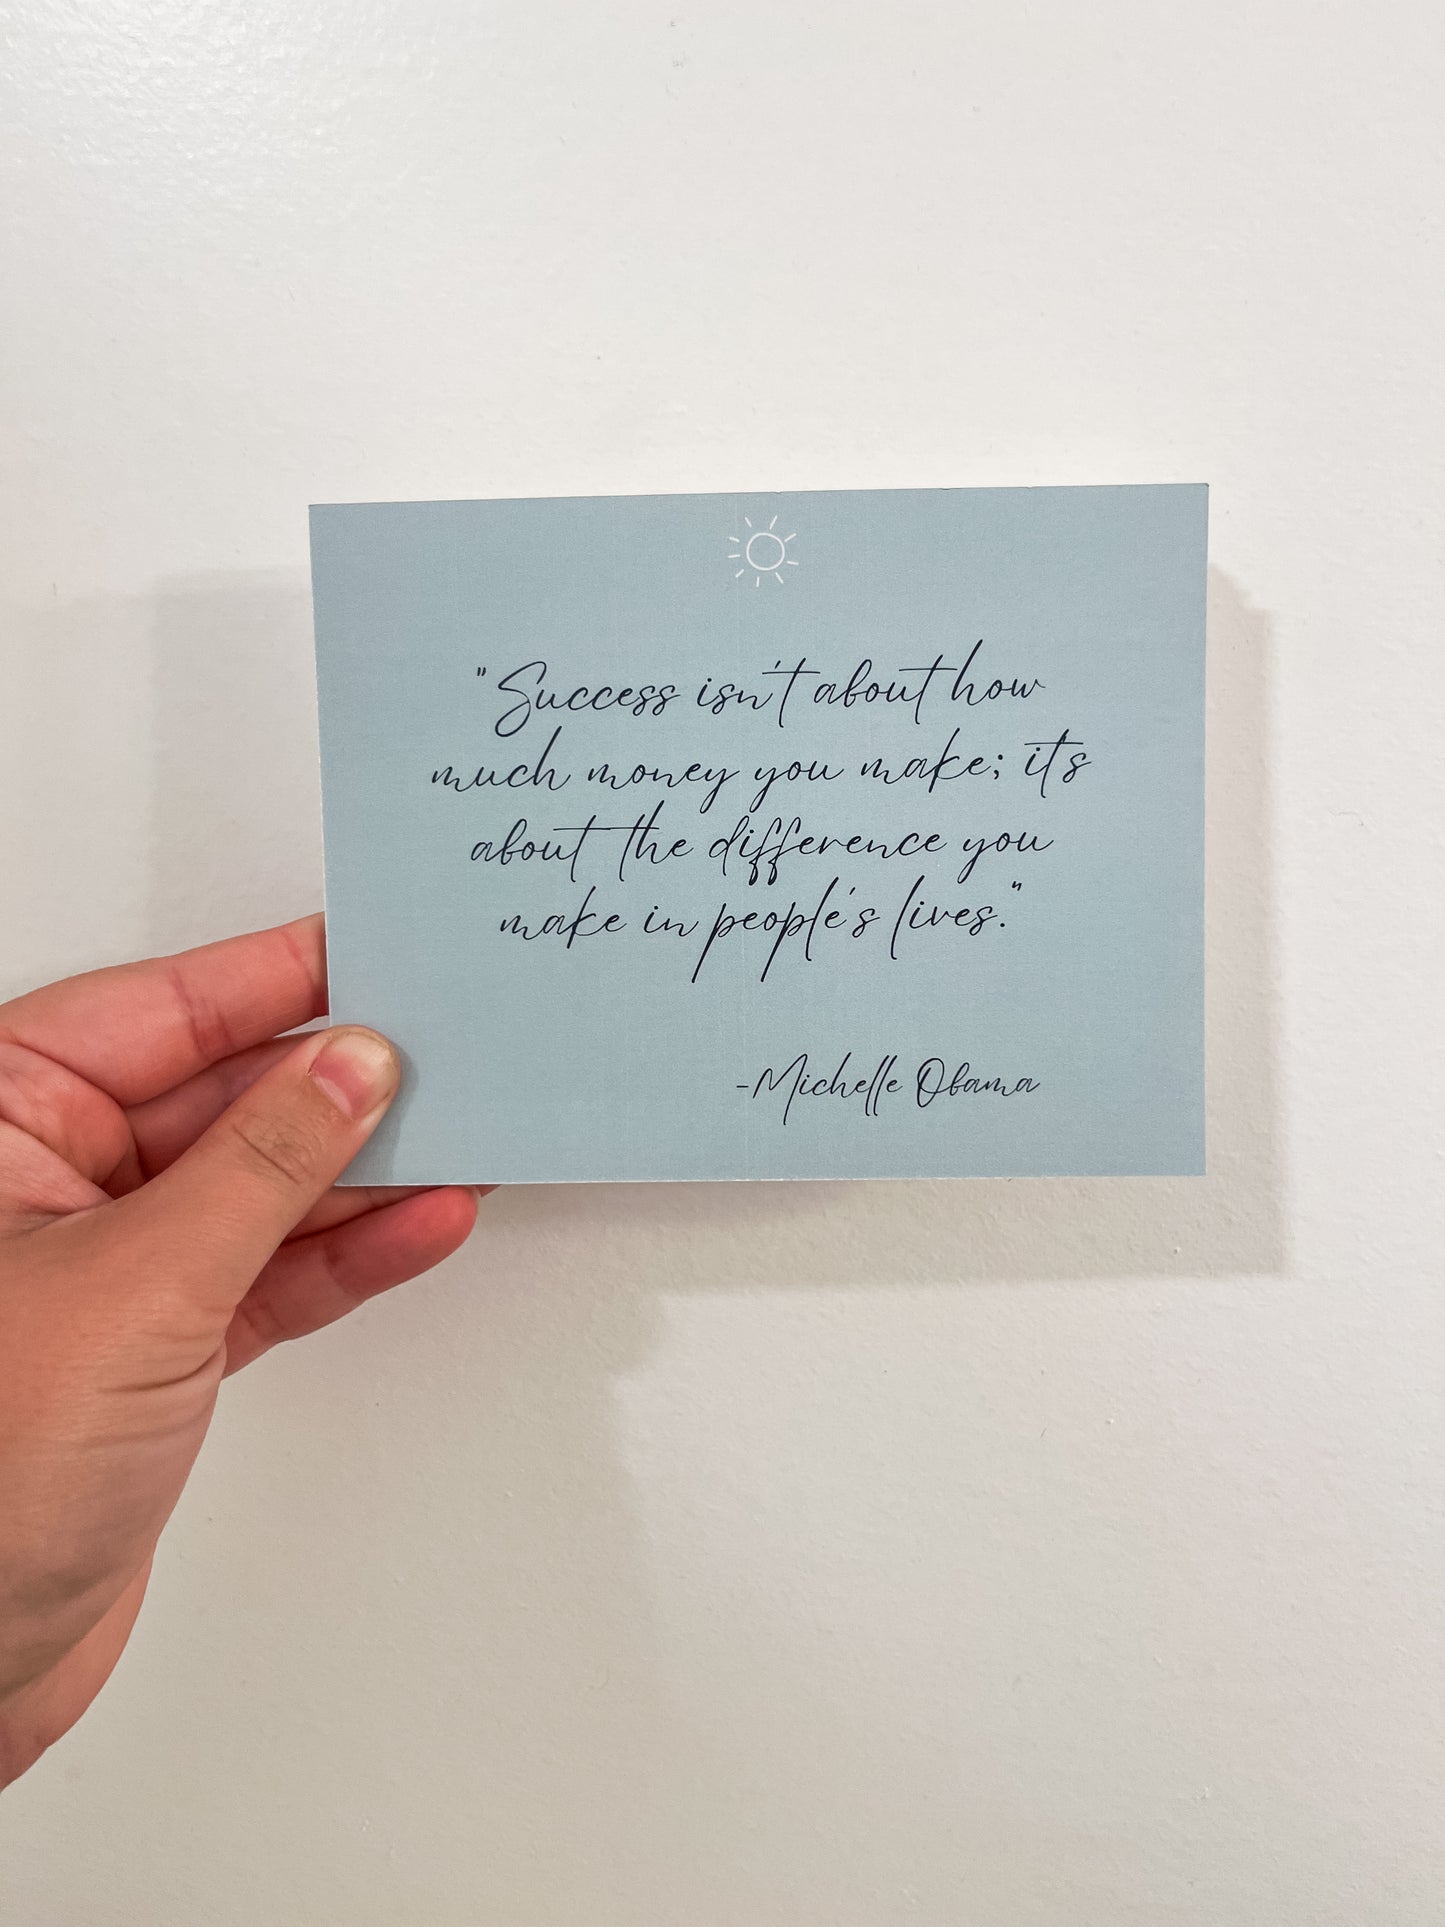 "Success isn't about how
much money you make; it's
about the difference you
make in people's lives."
-Michelle Obama